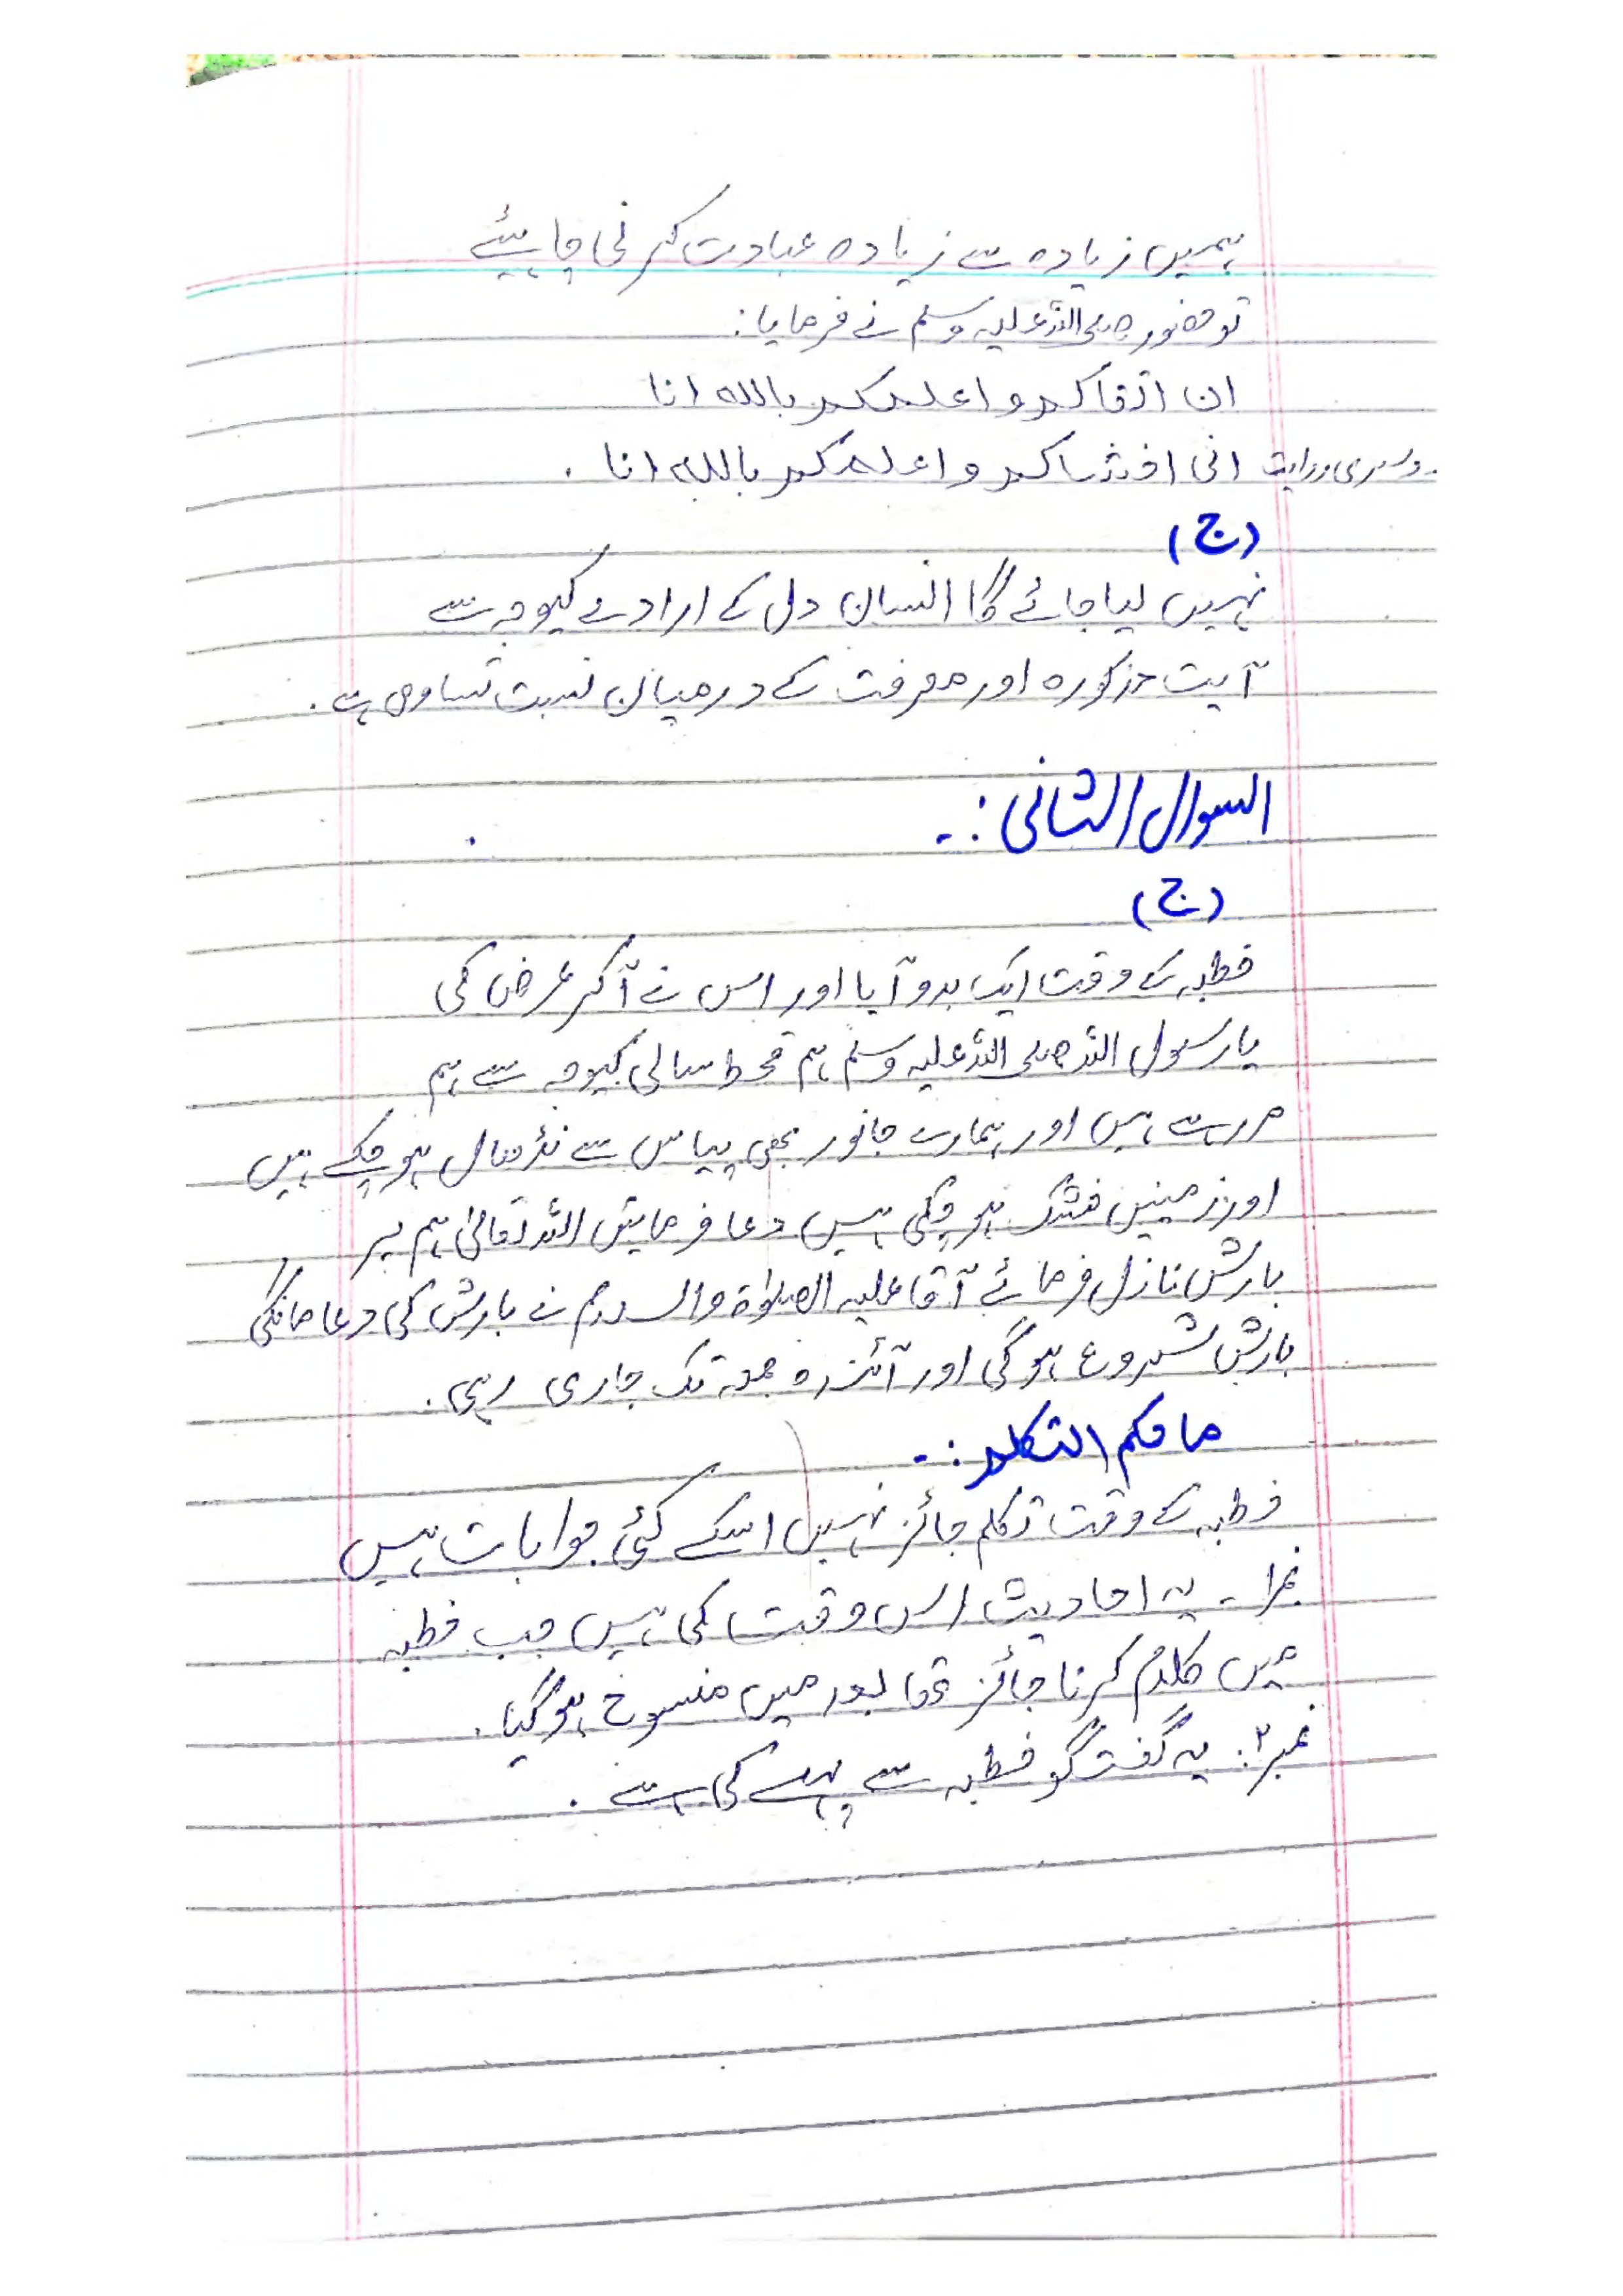 ہمیں زیادہ سے زیادہ عبادت کرنی چاہئیے
تو حضور صلی اللہ علیہ وسلم نے فرمایا:
ان اتقاکم و اعلمکم باللہ انا
دوسری روایت انی اخشاکم و اعلمکم باللہ انا .
(ج)
نہیں لیا جائے گا انسان دل کے ارادے کیوجہ سے
آیت مذکورہ اور معرفت کے درمیان نسبت تساوی ہے .
السوال الثانی :.
(ج)
خطبہ کے وقت ایک بدو آیا اور اس نے آکر عرض کی
یا رسول اللہ صلی اللہ علیہ وسلم ہم قحط سالی کیوجہ سے ہم
مر رہے ہیں اور ہمارے جانور بھی پیاس سے نڈھال ہو چکے ہیں
اور زمینیں خشک ہو چکی ہیں دعا فرمایں اللہ تعالیٰ ہم پر
بارش نازل فرمائے آقا علیہ الصلوٰۃ والسلام نے بارش کی دعا مانگی
بارش شروع ہو گی اور آئندہ جمعہ تک جاری رہی .
ما حکم التکلم :.
خطبہ کے وقت تکلم جائز نہیں اسکے کئی جوابات ہیں
نمبر ا - یہ احادیث اس وقت کی ہیں جب خطبہ
میں کلام کرنا جائز تھا بعد میں منسوخ ہو گیا .
نمبر ۲: یہ گفتگو خطبہ سے پہلے کی ہے .